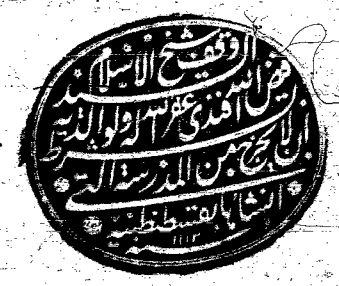 وقف شيخ الاسلام السيد
فيض الله افندى غفر الله له ولوالديه
بشرط ان لا يخرج من المدرسة التى
انشاها بقسطنطينية
سنه ١١١٣